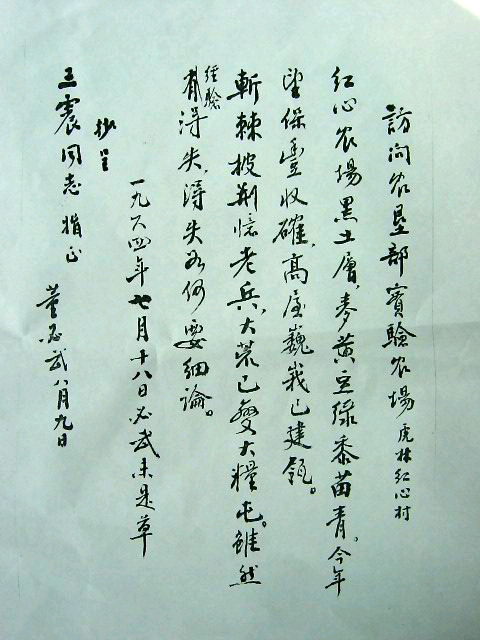 訪问农垦部實驗农場 虎林红心村
红心农場黑土層,麥黄豆绿黍苗青。今年
望保豊收確,高屋巍峩已建瓴。
斬棘披荆憶老兵,大荒已變大糧屯。雖然
經驗有得失,得失如何要細論。
一九六四年七月十八日必武未是草
抄呈
王震同志 指正
董必武八月九日